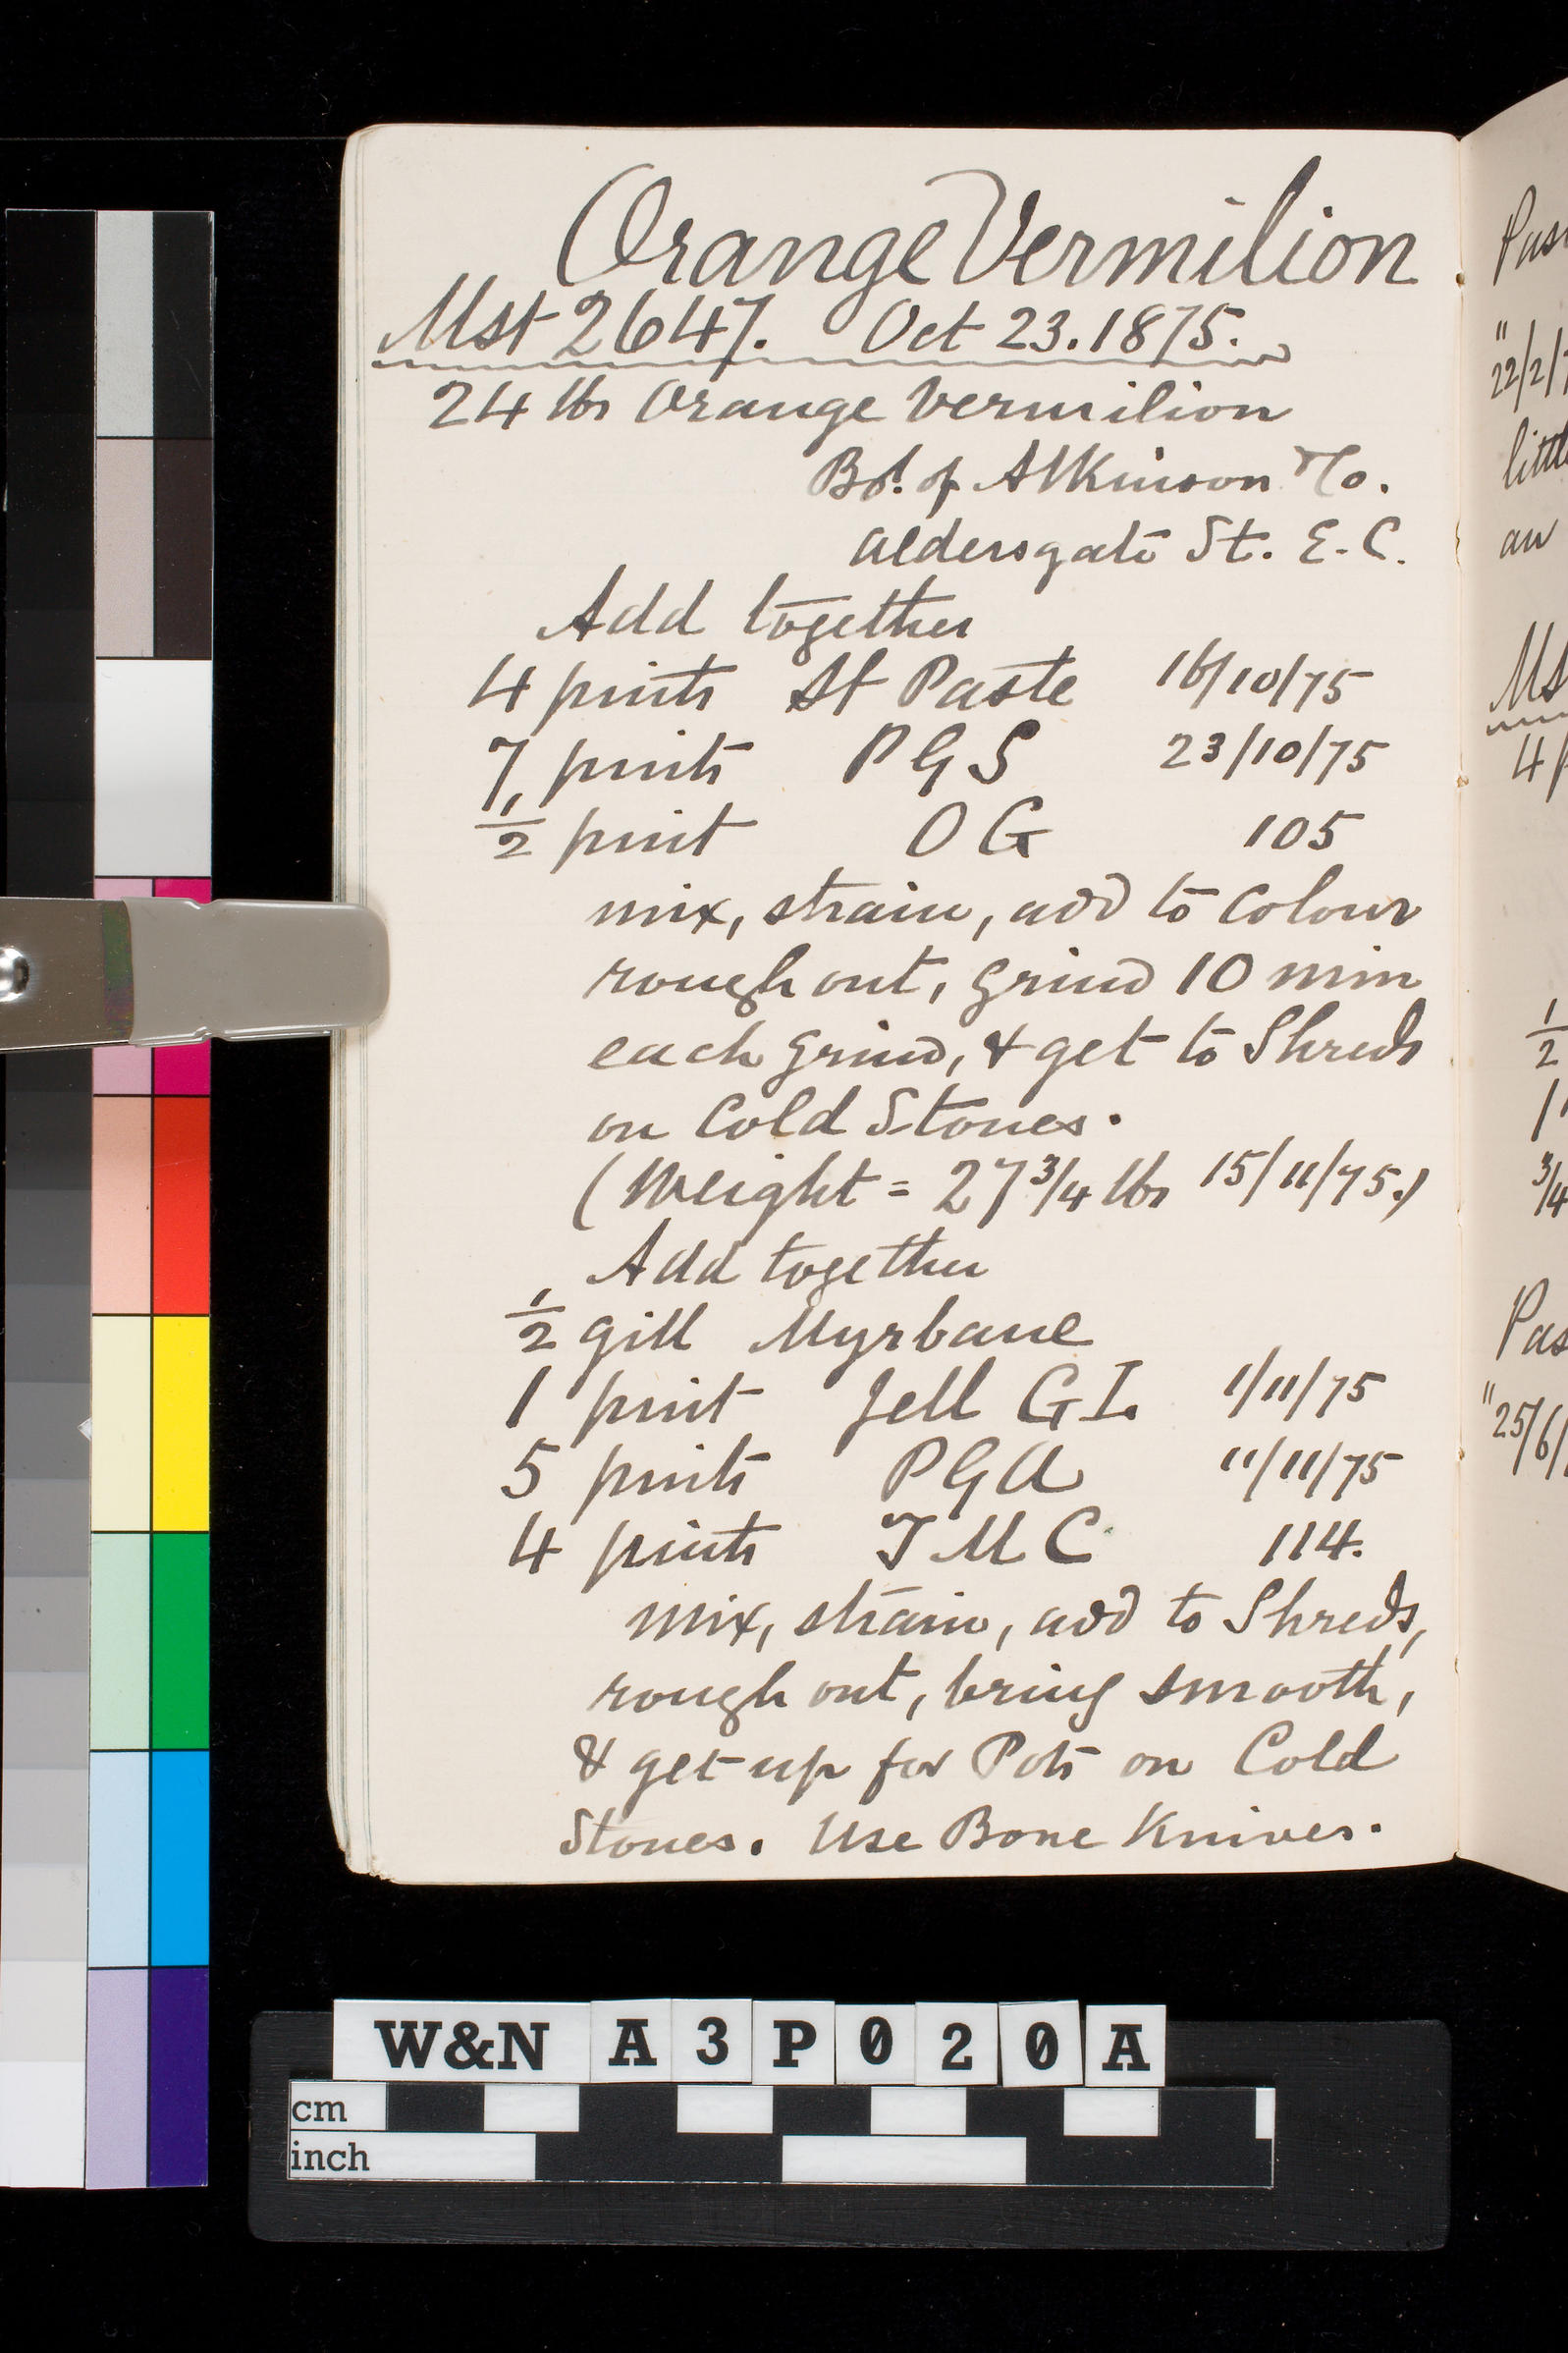 Orange Vermilion
Mst 2647. Oct 23. 1875.
24 lbs Orange Vermilion
Bot. of Atkinson & Co.
Aldersgate St. E. C.
Add together
4 pints St Paste 16/10/75
7 pints P G S 23/10/75
1/2 pint O G 105
mix, strain, add to Colour
rough out, grind 10 min
each grind, & get to Shreds
on Cold Stones.
(Weight = 27 3/4 lbs 15/11/75.)
Add together
1/2 gill Myrbane
1 pint Jell G I. 1/11/75
5 pints P G A 11/11/75
4 pints T M C 114.
mix, strain, add to Shreds,
rough out, bring smooth,
& get up for Pots on Cold
Stones. Use Bone Knives.
"
22/2/
an
4
1/2
3/4
"25/6/
W&N A3P020A
cm
inch